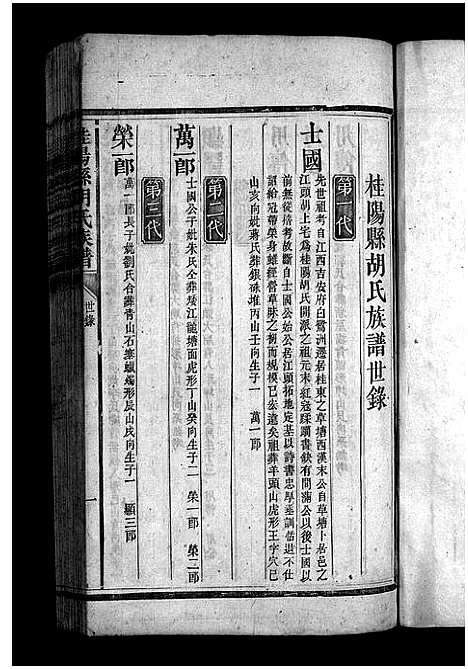 桂陽縣胡氏族譜世錄
第一代
士國
先世祖考自江西吉安府白鷺洲遷居桂東之草塘西漢末公自草塘卜居邑之
江頭胡上宅爲桂陽胡氏開派之祖元末紅冦蹂躪書缺有間滿公以後士國以
前無從稽考故斷自士國公始公居江頭拓地定基以詩書忠孝垂訓恬退不仕
詔給冠帶榮身雖經營草昧之初而規模已宏遠矣祖葬羊頭山虎形王字穴巳
山亥向妣蔣氏葬銀硃堆丙山壬向生子一 萬一郎
第二代
萬一郎
士國公子妣朱氏仝葬矮江髓塘面虎形丁山癸向生子二 榮一郎 榮二郎
第三代
榮一郎
萬一郎長子妣劉氏合葬青山石寨蠟燭形辰山戌向生子一 顯三郎
桂陽縣胡氏族譜
世錄
一